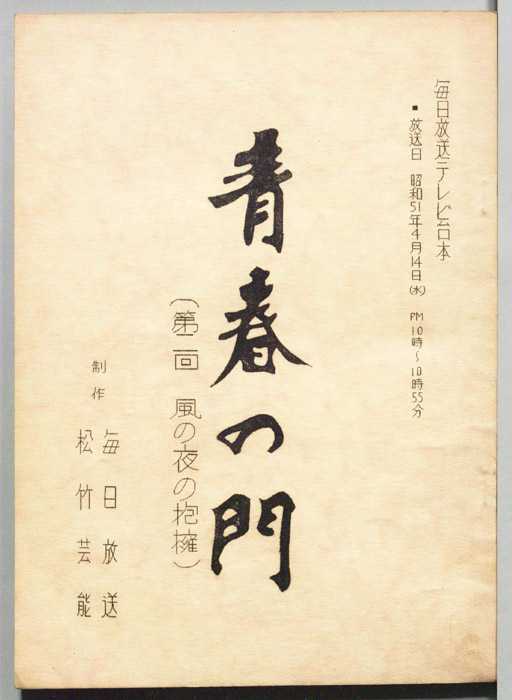 毎日放送テレビ台本
▪ 放送日 昭和51年4月14日(水) PM10時〜10時55分
青春の門
(第二回 風の夜の抱擁)
制作
毎日放送
松竹芸能